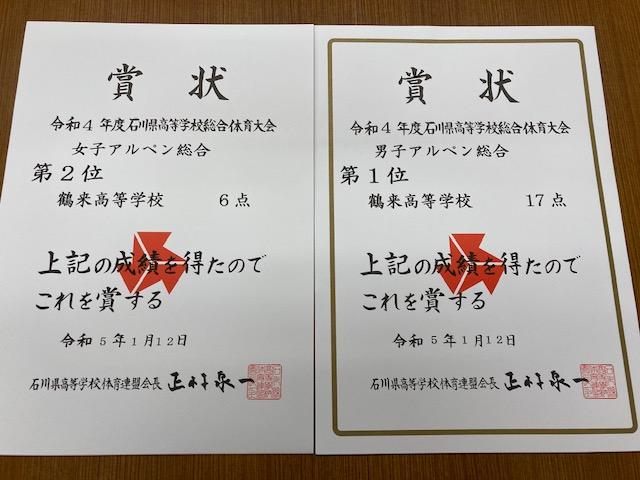 賞 状
令和4年度石川県高等学校総合体育大会
女子アルペン総合
第2位
鶴来高等学校 6点
上記の成績を得たので
これを賞する
令和5年1月12日
石川県高等学校体育連盟会長
賞 状
令和4年度石川県高等学校総合体育大会
男子アルペン総合
第1位
鶴来高等学校 17点
上記の成績を得たので
これを賞する
令和5年1月12日
石川県高等学校体育連盟会長